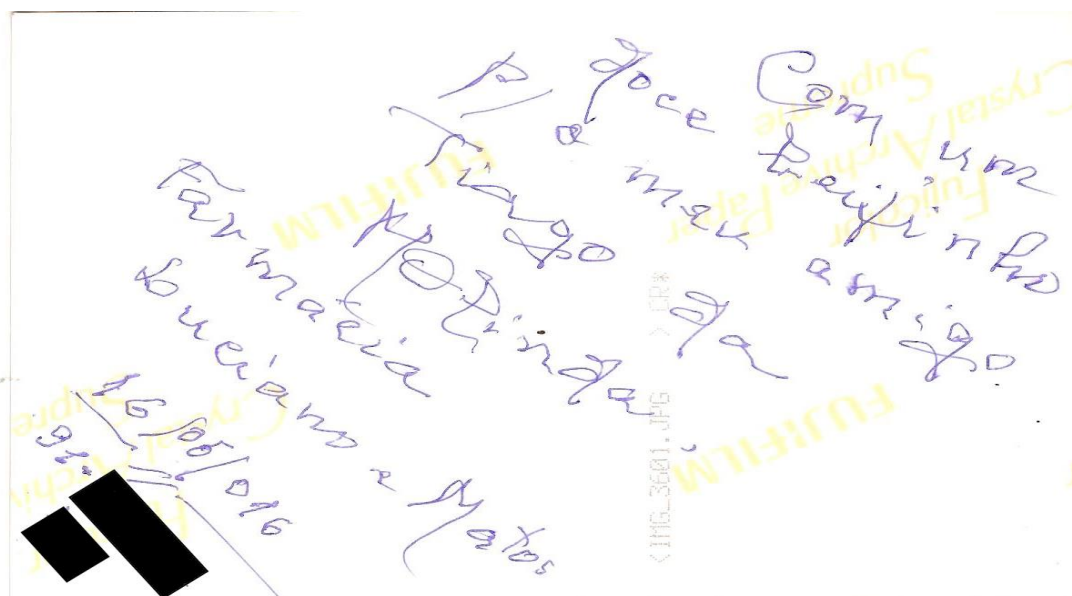 Com um
doce beijinho
p/ o meu amigo
Tiago da
Farmacia
Luciano e Matos
16/06/016
91.
FUJIFILM
Fujicolor
Crystal Archive Paper
Supreme
FUJIFILM
Crystal Archiv
Supre
<IMG_3601.JPG